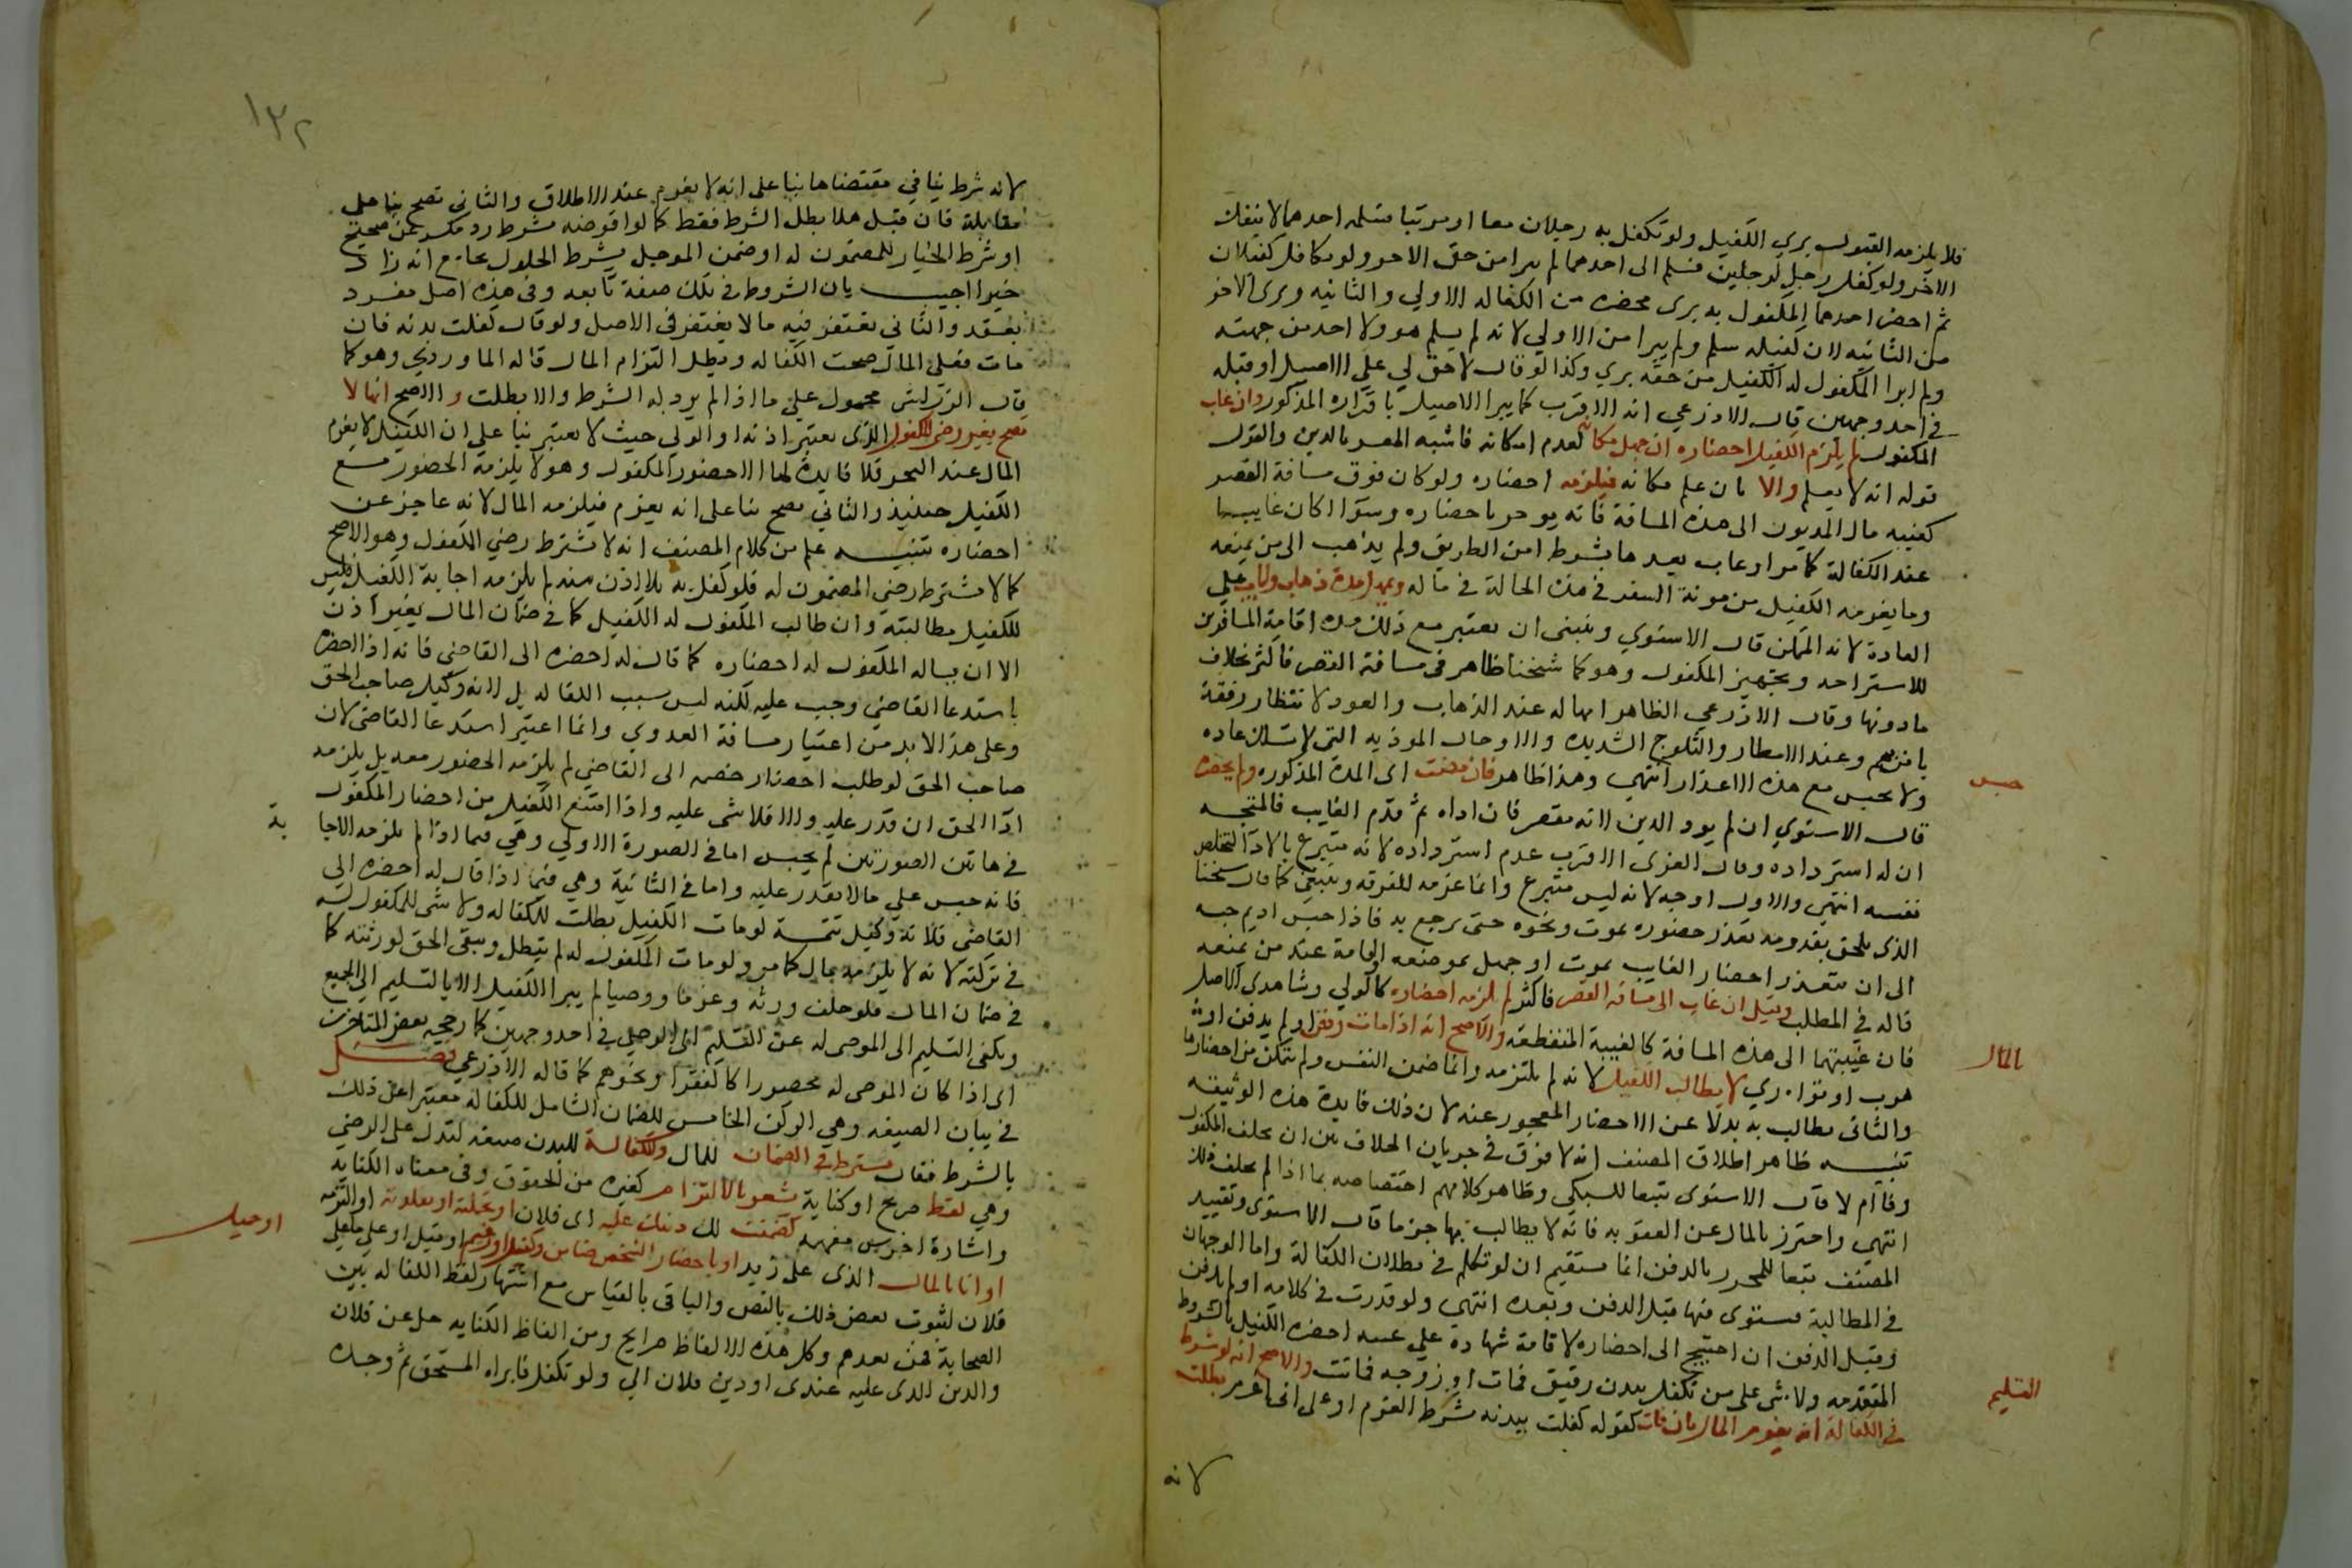 فلا يلزمه القبول بري الكفيل ولو تكفل به رجلان معا او مرتبا فسلمه احدهما لا ينفك
الاخر ولو كفل رجل لرجلين فسلم الى احدهما لم يبرا من حق الاخر ولو تكافل كفيلان
ثم احضر احدهما المكفول به بري محضره من الكفالة الاولي والثانيه وبري الاخر
من الثانيه لان كفيله سلم ولم يبرا من الاولي لانه لم يسلم هو ولا احد من جهته
ولو ابرا المكفول له الكفيل من حقه بري وكذا لو قال لا حق لي علي الاصيل او قبله
في احد وجهين قال الاذرعي انه الاقرب كما يبرا الاصيل باقراره المذكور وان غاب
المكفول لم يلزم الكفيل احضاره ان جهل مكانه لعدم امكانه فاشبه المعسر بالدين والقول
قوله انه لا يعلم والا بان علم مكانه فيلزمه احضاره ولو كان فوق مسافة القصر
كغيبه مال المديون الى هذه المسافة فانه يومر باحضاره وسوا اكان غايبا
عند الكفالة كما مر او غاب بعدها بشرط امن الطريق ولم يذهب الى من يمنعه
وما يغرمه الكفيل من مونة السفر في هذه الحالة في ماله ويمهل مدة ذهاب واياب علي
العادة لانه الممكن قال الاسنوي وينبغي ان يعتبر مع ذلك مدة اقامة المسافرين
للاستراحه وتجهيز المكفول وهو كما شيخنا ظاهر في مسافة القصر فاكثر بخلاف
ما دونها وقال الاذرعي الظاهر امهاله عند الذهاب والعود لانتظار رفقة
يا من بهم وعند الامطار والثلوج الشديده والاوحال الموذيه التي لا تسلك عاده
ولا يحبس مع هذه الاعذار انتهي وهذا ظاهر فان مضت اى المدة المذكوره ولم يحضره
حبس
قال الاسنوي ان لم يود الدين لانه مقصر فان اداه ثم قدم الغايب فالمتجه
ان له استرداده وقال الغزى الاقرب عدم استرداده لانه متبرع بالادا لتخليص
نفسه انتهي والاول اوجه لانه ليس متبرع وانما غرمه للفرقه وينبغي كما قال شيخنا
الذى يلحق بقدومه تعذر حضوره بموت ونحوه حتى يرجع به فاذا حبس اديم حبسه
الى ان يتعذر احضار الغايب بموت او جهل بموضعه او اقامة عند من يمنعه
قاله في المطلب وقيل ان غاب الى مسافة القصر فاكثر لم يلزمه احضاره كالولي وشاهدى الاصل
فان غيبتهما الى هذه المسافة كالغيبة المنقطعة والاصح انه اذا مات ودفن او لم يدفن او
هرب او توارى لا يطالب الكفيل بالمال لانه لم يلتزمه وانما ضمن النفس ولم يتمكن من احضارها
والثاني يطالب به بدلا عن الاحضار المعجوز عنه لان ذلك فايدة هذه الوثيقه
تنبيه ظاهر اطلاق المصنف انه لا فرق في جريان الخلاف بين ان يخلف المكفول
وفا ام لا قال الاسنوى تبعا للسبكي وظاهر كلامهم اختصاصه بما اذا لم يخلف ذلك
انتهي واحترز بالمال عن العقوبه فانه لا يطالب بها جزما قال الاسنوى وتقييد
المصنف تبعا للمحرر بالدفن انما يستقيم ان لو تكلم في بطلان الكفالة واما الوجهان
في المطالبة فيستوى فيها قبل الدفن وبعده انتهي ولو قدرت في كلامه او لم يدفن
وقبل الدفن ان احتيج الى احضاره لاقامة شهادة علي عينه احضره الكفيل بالشروط
المتقدمه ولا شى على من تكفل ببدن رقيق فمات او زوجه فماتت والاصح انه لو شرط
في الكفالة انه يغرم المال ان فات التسليم كقوله كفلت ببدنه بشرط الغرم او على اني اغرم بطلت
لانه
١٣٢
لانه شرط ينافي مقتضاها بنا على انه لا يغرم عند الاطلاق والثاني تصح بنا على
مقابلة فان قيل هلا بطل الشرط فقط كما لو اقرضه بشرط رد مكسر عن صحيح
او شرط الخيار للمضمون له او ضمن الموجل بشرط الحلول بجامع انه زاد
خيرا اجيب بان الشروط في تلك صفة تابعه وفي هذه اصل مفرد
بعقد والثاني يغتفر فيه ما لا يغتفر في الاصل ولو قال كفلت بدنه فان
مات فعلي المال صحت الكفاله وبطل التزام المال قاله الماوردي وهو كما
قال الزركشي محمول علي ما اذا لم يرد به الشرط والا بطلت والاصح انها لا
تصح بغير رضي المكفول الذى يعتبر اذنه او الولي حيث لا يعتبر بنا علي ان الكفيل لا يغرم
المال عند العجز فلا فايدة لها الا حضور المكفول وهو لا يلزمه الحضور مع
الكفيل حينئذ والثاني تصح بنا على انه يغرم فيلزمه المال لانه عاجز عن
احضاره تنبيه علم من كلام المصنف انه لا يشترط رضي الكفول وهو الاصح
كما لا يشترط رضي المضمون له فلو كفل به بلا اذن منه لم يلزمه اجابة الكفيل فليس
للكفيل مطالبته وان طالب المكفول له الكفيل كما في ضمان المال بغير اذن
الا ان يساله المكفول له احضاره كما قال له احضره الى القاضي فانه اذا احضره
باستدعا القاضي وجب عليه لكنه ليس سبب الكفاله بل لانه وكيل صاحب الحق
وعلى هذا لا بد من اعتبار مسافة العدوي وانما اعتبر استدعا القاضي لان
صاحب الحق لو طلب احضار خصمه الى القاضي لم يلزمه الحضور معه بل يلزمه
ادا الحق ان قدر عليه والا فلا شى عليه واذا امتنع الكفيل من احضار المكفول
في هاتين الصورتين لم يحبس اما في الصورة الاولي وهي فيما اذا لم يلزمه الاجابة
فانه حبس علي ما لا يقدر عليه واما في الثانية وهي فيما اذا قال له احضره الى
القاضي فلانه وكيل تتمة لو مات الكفيل بطلت الكفاله ولا شى للمكفول له
في تركته لانه لا يلزمه بمال كما مر ولو مات المكفول له لم يبطل ويبقى الحق لورثته كما
في ضمان المال فلو خلف ورثه وغرما ووصيا لم يبرا الكفيل الا بالتسليم الى الجميع
ويكفى التسليم الى الموصى له عن التسليم الى الوصي في احد وجهين كما رجحه بعض المتاخرين
اى اذا كان الموصى له محصورا لا كالفقرا ونحوهم كما قاله الاذرعي فصل
في بيان الصيغه وهي الركن الخامس للضمان الشامل للكفالة معتبرا عن ذلك
بالشرط فقال يشترط في الضمان للمال والكفالة للبدن صيغة لتدل على الرضي
وهي لفظ صريح او كناية تشعر بالالتزام كغيره من الحقوق وفي معناه الكتابة
واشارة اخرس مفهمه كضمنت لك دينك عليه اى فلان او تحملته او تقلدته او التزمته
او انا بالمال الذى على زيد او باحضار الشخص ضامن او كفيل او زعيم او حميل او قبيل او علي ما علي
فلان لثبوت بعض ذلك بالنص والباقى بالقياس مع اشتهار لفظ الكفاله بين
الصحابة فمن بعدهم وكل هذه الالفاظ صرايح ومن الفاظ الكنايه خل عن فلان
والدين الذى عليه عندى او دين فلان الي ولو تكفل فابراه المستحق ثم وجده